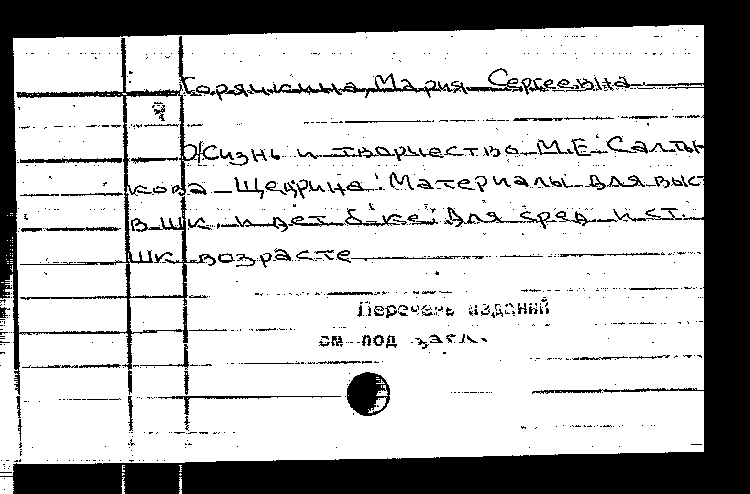 Горячкина, Мария Сергеевна.
Жизнь и творчество М.Е. Салты
кова-Щедрина: Материалы для выст
в шк. и дет б-ке: Для сред и ст.
шк возрасте
Перечень изданий
см под загл.